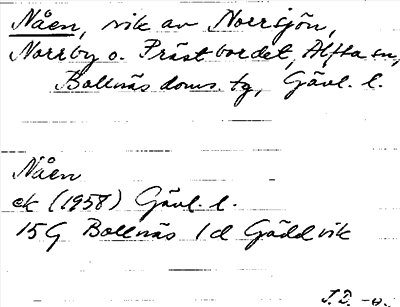 Nåen, vik av Norrsjön,
Norrby o. Prästbordet, Alfta sn,
Bollnäs doms. tg, Gävl. l.
Nåen
ek (1958) Gävl. l.
15G Bollnäs 1d Gäddvik
J.D. -a.